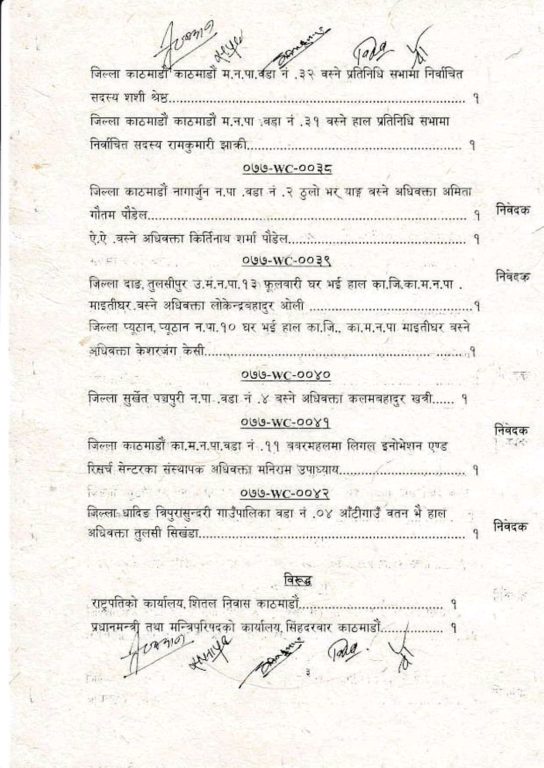 जिल्ला काठमाडौं काठमाडौं म.न.पा.वडा नं .३२ बस्ने प्रतिनिधि सभामा निर्वाचित
सदस्य शशी श्रेष्ठ.................................................................... १
जिल्ला काठमाडौं काठमाडौं म.न.पा .वडा नं .३१ बस्ने हाल प्रतिनिधि सभामा
निर्वाचित सदस्य रामकुमारी झाक्री.................................................. १
०७७-WC-००३८
जिल्ला काठमाडौं नागार्जुन न.पा .वडा नं .२ ठुलो भर् याङ्ग बस्ने अधिवक्ता अमिता
गौतम पौडेल........................................................................ १ निवेदक
ऐ.ऐ .बस्ने अधिवक्ता किर्तिनाथ शर्मा पौडेल........................................ १
०७७-WC-००३९
निवेदक
जिल्ला दाङ, तुलसीपुर उ.मं.न.पा.१३ फूलवारी घर भई हाल का.जि.का.म.न.पा .
माइतीघर.बस्ने अधिवक्ता लोकेन्द्रबहादुर ओली ......................................१
जिल्ला प्यूठान, प्यूठान न.पा.१० घर भई हाल का.जि., का.म.न.पा माइतीघर बस्ने
अधिवक्ता केशरजंग केसी............................................................१
०७७-WC-००४०
जिल्ला सुर्खेत पञ्चपुरी न.पा .वडा नं .४ बस्ने अधिवक्ता कलमबहादुर खत्री...... १
०७७-WC-००४१ निवेदक
जिल्ला काठमाडौं का.म.न.पा.वडा नं .११ बबरमहलमा लिगल इनोभेशन एण्ड
रिसर्च सेन्टरका संस्थापक अधिवक्ता मनिराम उपाध्याय............................. १
०७७-WC-००४२
जिल्ला धादिङ त्रिपुरासुन्दरी गाउँपालिका वडा नं .०४ आँटीगाउँ वतन भै हाल
अधिवक्ता तुलसी सिखंडा............................................................ १ निवेदक
विरूद्ध
राष्ट्रपतिको कार्यालय, शितल निवास काठमाडौं.................................... १
प्रधानमन्त्री तथा मन्त्रिपरिषदको कार्यालय, सिंहदरवार काठमाडौं................ १
३